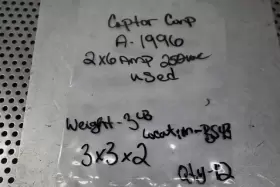 Captor Corp
A-1996
2x6 Amp 250VAC
used
Weight-3LB
Location-B5B
3x3x2
Qty-2